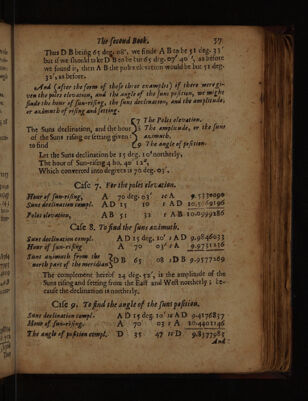 The second Book. 57
Thus D B being 65 deg. 08'. we finde A B to be 51 deg. 33'
but if we should take D B to be but 65 deg. 07' 40'', as before
we found it, then A B the poles elevation would be but 51 deg.
32', as before.
And (after the form of those three examples) if there were given
the poles elevation, and the angle of the suns position, we might
finde the hour of sun-rising, the suns declination, and the amplitude,
or azimuth of rising and setting.
7 The Poles elevation.
The Suns declination, and the hour 8 The amplitude, or the suns
of the Suns rising or setting given: azimuth.
to find 9 The angle of position.
Let the Suns declination be 15 deg. 10' northerly,
The hour of Sun-rising 4 ho. 40' 12'',
Which converted into degrees is 70 deg. 03'.
Case 7. For the poles elevation.
Hour of sun-rising, A 70 deg. 03'
Suns declination compl. A D 15 10 t A D 10.5669196
Poles elevation, A B 51 32 t A B 10.0999286
Case 8. To find the suns azimuth.
Suns declination compl. A D 15 deg. 10' s A D 9.9846033
Hour of sun-rising A 70 03' s A 9.9731216
Suns azimuth from the
north part of the meridian D B 65 08 s D B 9.9577249
The complement hereof 24 deg. 52', is the amplitude of the
Suns rising and setting from the East and West northerly; because
the declination is northerly.
Case 9. To find the angle of the suns position.
Suns declination compl. A D 15 deg. 10' A D 9.4176837
Hour of sun-rising. A 70 03 t A 10.4401146
The angle of position compl. D 35 47 t D 9.8577983
And